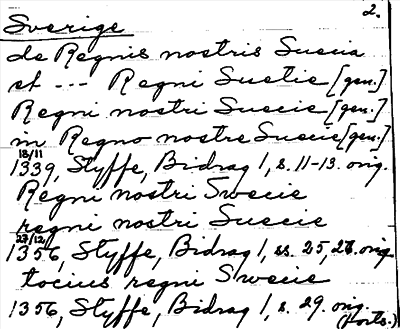 2.
Sverige
de Regnis nostris Suecia
et --- Regni Suetie [gen.]
Regni nostri Suecie [gen.]
in Regno nostro Suecie [gen.]
18/11
1339, Styffe, Bidrag 1, s. 11-13. orig.
Regni nostri Swecie
regni nostri Suecie
27/12
1356, Styffe, Bidrag 1, ss. 25, 26. orig.
tocius regni Swecie
1356, Styffe, Bidrag 1, s. 29. orig.
(Forts.)